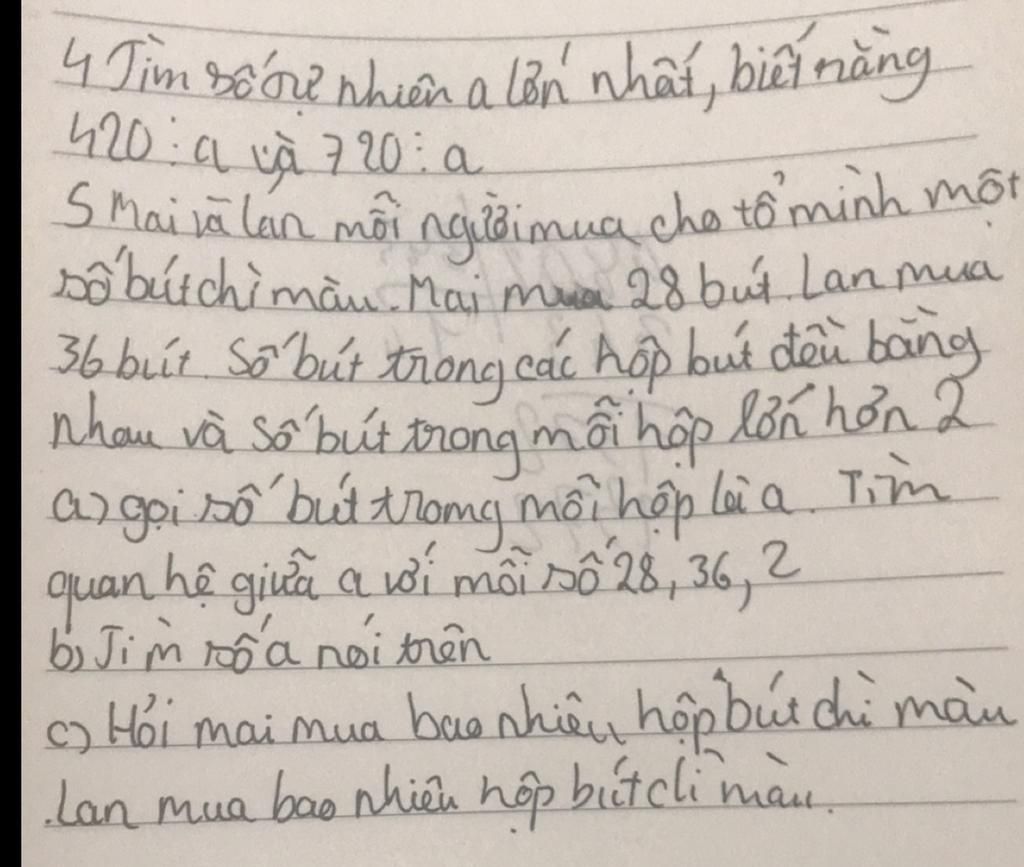 4 Tìm số tự nhiên a lớn nhất, biết rằng
420 : a và 720 : a
5 Mai và lan mỗi người mua cho tổ mình một
số bút chì màu. Mai mua 28 bút. Lan mua
36 bút. Số bút trong các hộp bút đều bằng
nhau và số bút trong mỗi hộp lớn hơn 2
a) gọi số bút trong mỗi hộp là a. Tìm
quan hệ giữa a với mỗi số 28, 36, 2
b) Tìm số a nói trên
c) Hỏi mai mua bao nhiêu hộp bút chì màu
Lan mua bao nhiêu hộp bút chì màu.